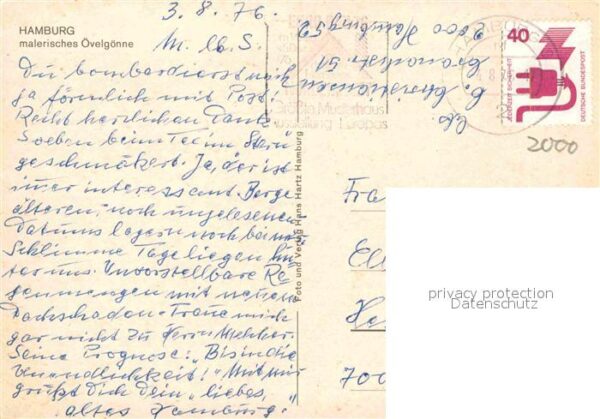 HAMBURG
malerisches Övelgönne
3.8.76.
M. lb. S.
Du bombardierst mich
ja förmlich mit Post.
Recht herzlichen Dank.
Soeben beim Tee im Stern
geschmökert. Ja, der ist
immer interessant. Berge
älteren, noch ungelesenen
Datums lagern noch bei mir
Schlimme Tage liegen hin-
ter uns. Unvorstellbare Re-
genmengen mit neuem
Dachschaden. Traue mich
gar nicht zu Herrn
Seine Prognose: "Bis in die
Unendlichkeit!" Mit mir
grüßt Dich Dein "liebes,
altes Hamburg."
Foto und Verlag Hans Hartz Hamburg
51
2000 Hamburg 52
40
JEDERZEIT SICHERHEIT
DEUTSCHE BUNDESPOST
2000
Fra
El
He
700
privacy protection
Datenschutz